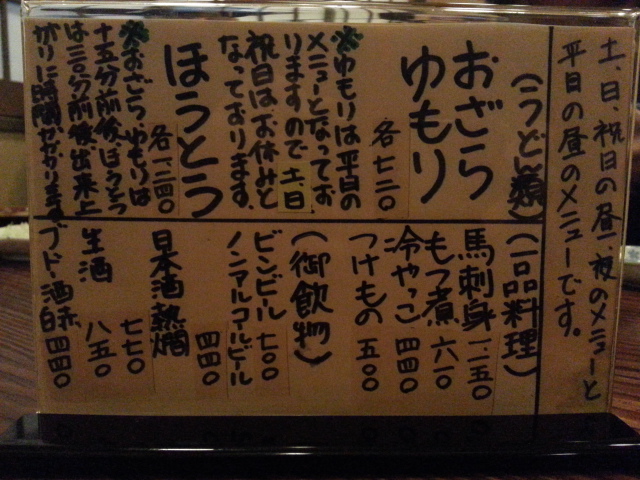 土、日、祝日の昼、夜のメニューと
平日の昼のメニューです。
(うどん類)
おざら
ゆもり
各七二〇
※ゆもりは平日の
メニューとなってお
りますので土、日
祝日はお休みと
なっております。
ほうとう
各一二四〇
※おざら、ゆもりは
十五分前後、ほうとう
は三〇分前後、出来上
がりに時間がかかります
(一品料理)
馬刺身 一二五〇
もつ煮 六一〇
冷やっこ 四四〇
つけもの 五〇〇
(御飲物)
ビンビール 七〇〇
ノンアルコールビール
四四〇
日本酒熱燗
七七〇
生酒 八五〇
ブドー酒 赤白 四四〇